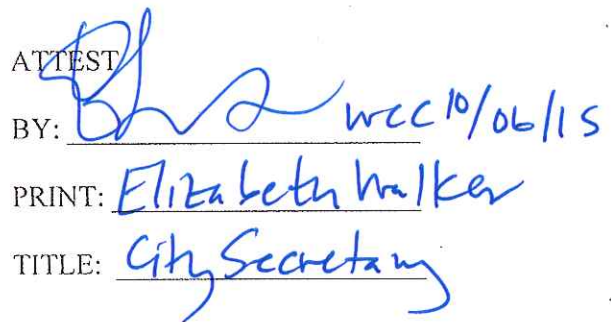 ATTEST
BY: wcc 10/06/15
PRINT: Elizabeth Walker
TITLE: City Secretary